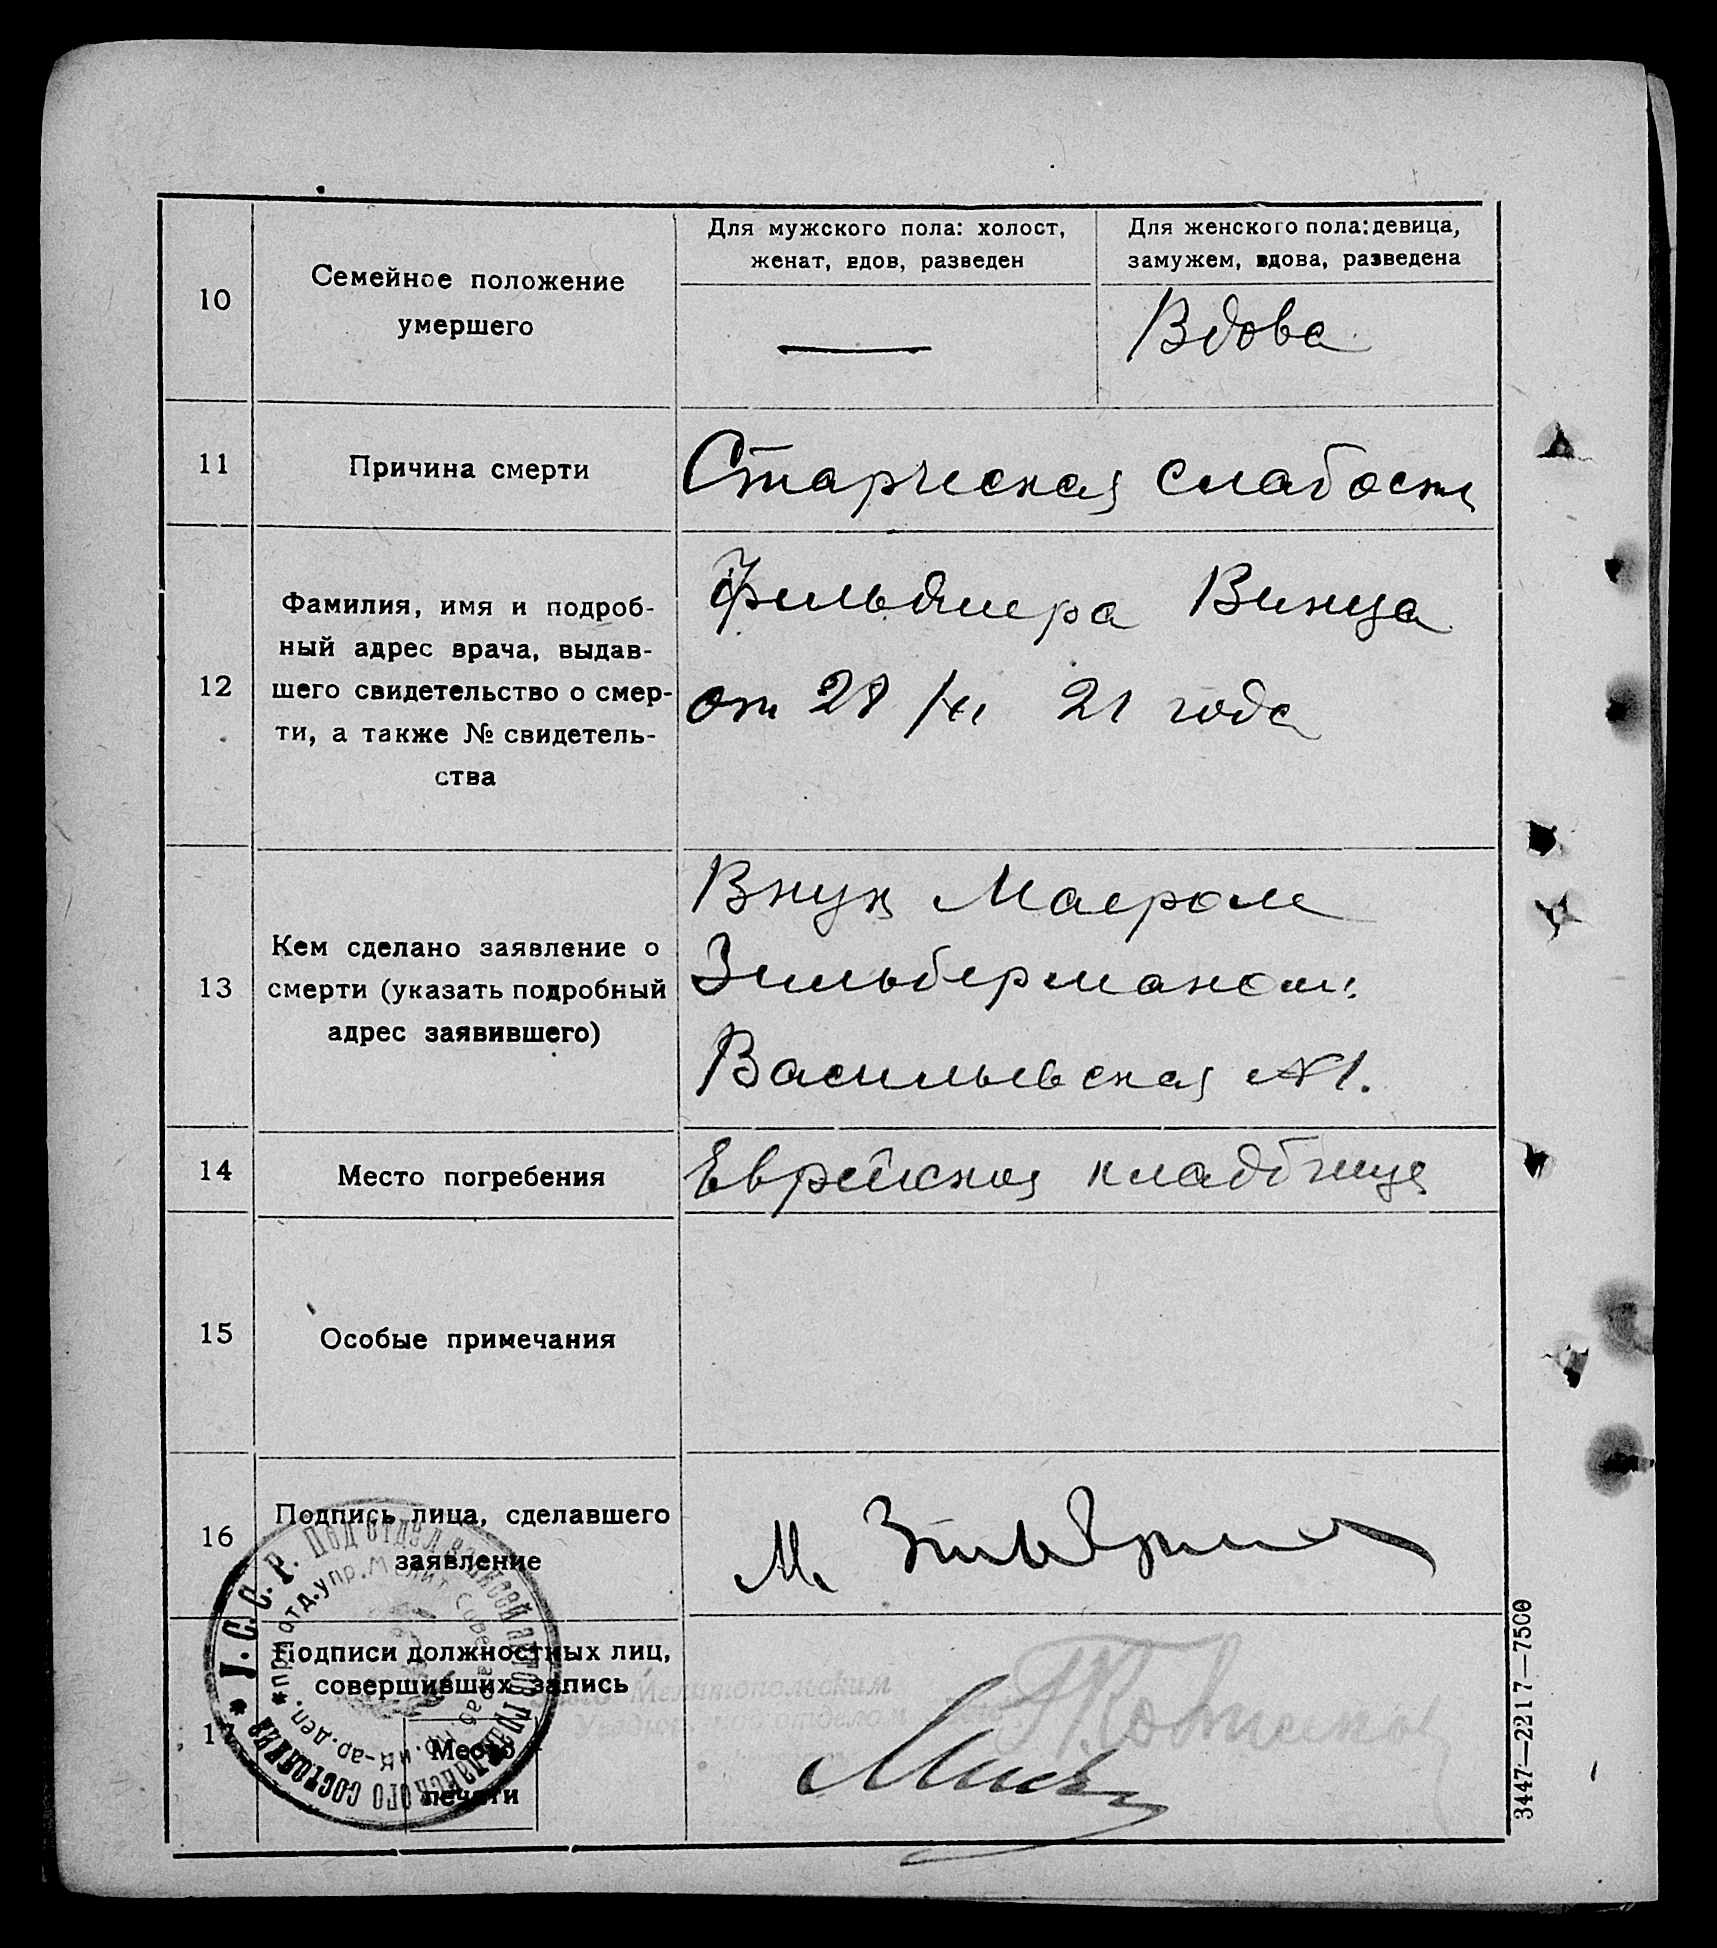 10
Семейное положение
умершего
Для мужского пола: холост,
женат, вдов, разведен
Для женского пола: девица,
замужем, вдова, разведена
Вдова
11
Причина смерти
Старческая слабость
12
Фамилия, имя и подроб-
ный адрес врача, выдав-
шего свидетельство о смер-
ти, а также № свидетель-
ства
Фельдшера Винца
от 28 /XI 21 года
13
Кем сделано заявление о
смерти (указать подробный
адрес заявившего)
Внук Маером
Зильберманом.
Васильевская №1.
14
Место погребения
Еврейская кладбище
15
Особые примечания
16
Подпись лица, сделавшего
заявление
М. Зильберман
17
Подписи должностных лиц,
совершивших запись
Место
печати
Мелитопольским
отделом
Подотдел записей актов гражданского состояния
при отд. упр. Мелит.
3447—2217—7500